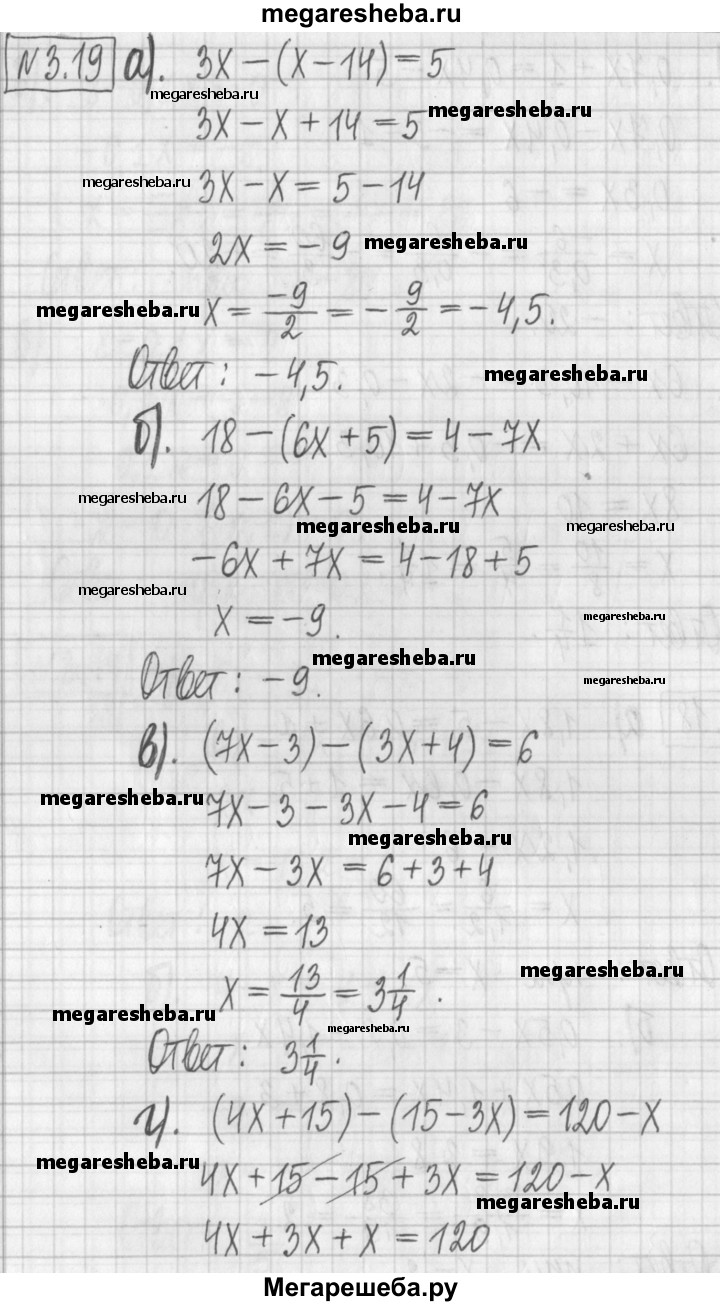 megaresheba.ru
№3.19 а). 3x − (x − 14) = 5
megaresheba.ru
3x − x + 14 = 5 megaresheba.ru
megaresheba.ru 3x − x = 5 − 14
2x = −9 megaresheba.ru
megaresheba.ru x = −9/2 = −9/2 = −4,5.
Ответ: −4,5. megaresheba.ru
б). 18 − (6x + 5) = 4 − 7x
megaresheba.ru 18 − 6x − 5 = 4 − 7x
megaresheba.ru megaresheba.ru
−6x + 7x = 4 − 18 + 5
megaresheba.ru
x = −9. megaresheba.ru
megaresheba.ru
Ответ: −9. megaresheba.ru
в). (7x − 3) − (3x + 4) = 6
megaresheba.ru 7x − 3 − 3x − 4 = 6
megaresheba.ru
7x − 3x = 6 + 3 + 4
4x = 13
megaresheba.ru
x = 13/4 = 3 1/4.
megaresheba.ru
megaresheba.ru
Ответ: 3 1/4.
г). (4x + 15) − (15 − 3x) = 120 − x
megaresheba.ru 4x + 15 − 15 + 3x = 120 − x
megaresheba.ru
4x + 3x + x = 120
Мегарешеба.ру